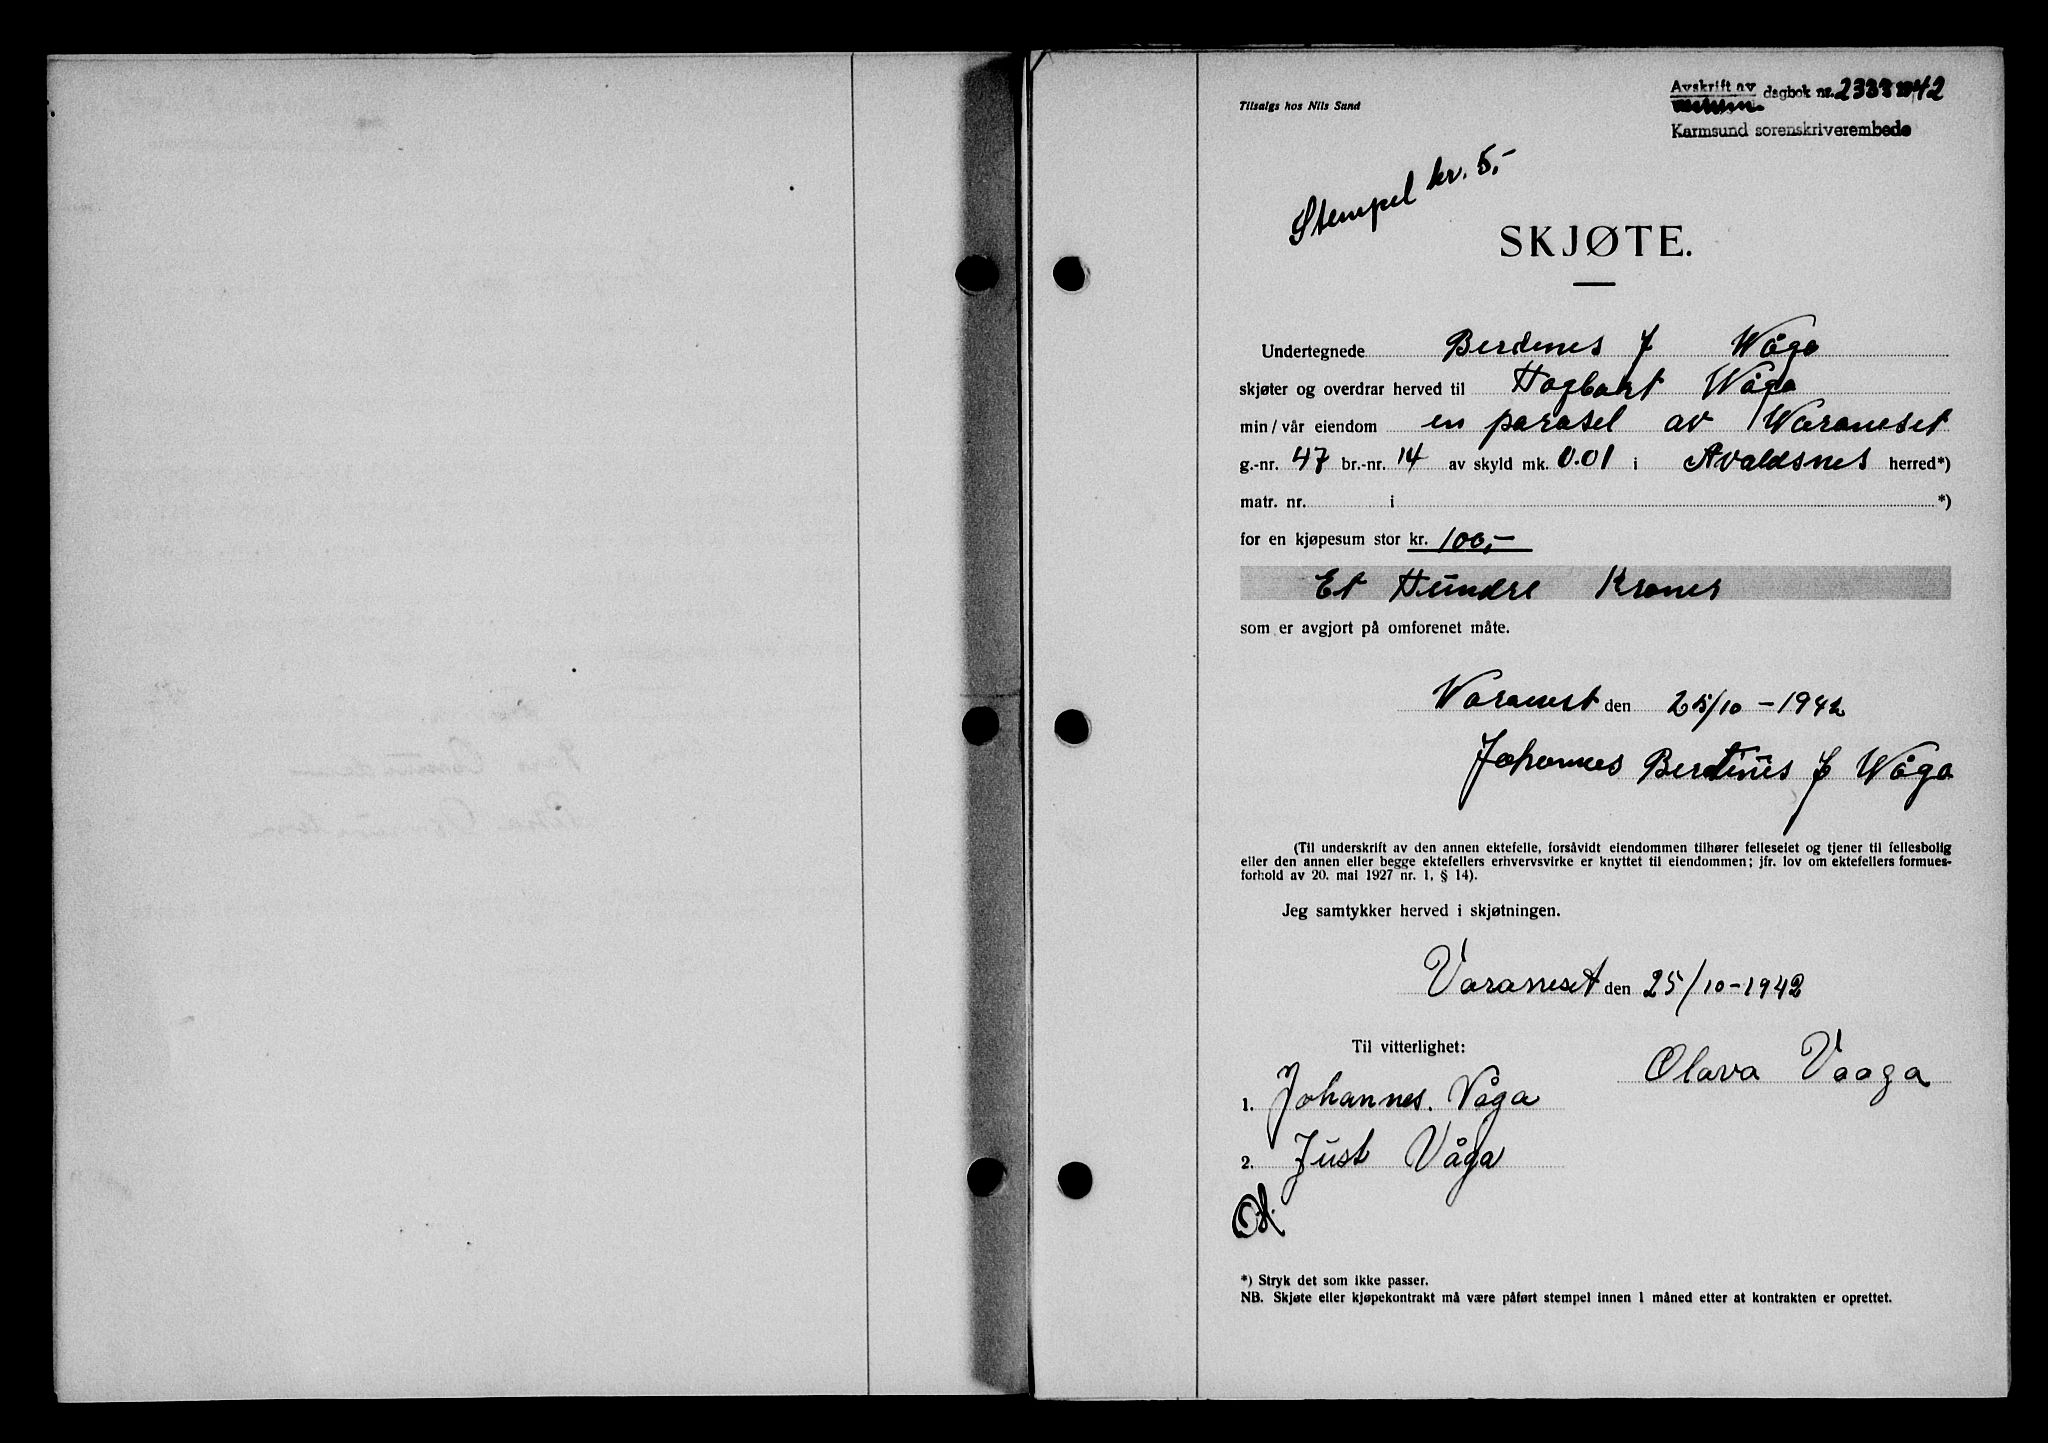 Tilsalgs hos Nils Sund
Avskrift av dagbok nr. 2333 1942
Karmsund sorenskriverembede
Stempel kr. 5,-
SKJØTE.
Undertegnede Berdenes J Wåga
skjøter og overdrar herved til Hagbart Wåga
min/vår eiendom en parasel av Waraneset
g.-nr. 47 br.-nr. 14 av skyld mk. 0.01 i Avaldsnes herred*)
matr. nr. i *)
for en kjøpesum stor kr. 100,-
Et Hundre Kroner
som er avgjort på omforenet måte.
Waranest den 25/10 - 1942
Johannes Berdinis J Wåga
(Til underskrift av den annen ektefelle, forsåvidt eiendommen tilhører felleseiet og tjener til fellesbolig
eller den annen eller begge ektefellers erhvervsvirke er knyttet til eiendommen; jfr. lov om ektefellers formues-
forhold av 20. mai 1927 nr. 1, § 14).
Jeg samtykker herved i skjøtningen.
Varaneset den 25/10-1942
Til vitterlighet:
Olava Vaaga
1. Johannes. Våga
2. Just Våga
*) Stryk det som ikke passer.
NB. Skjøte eller kjøpekontrakt må være påført stempel innen 1 måned etter at kontrakten er oprettet.